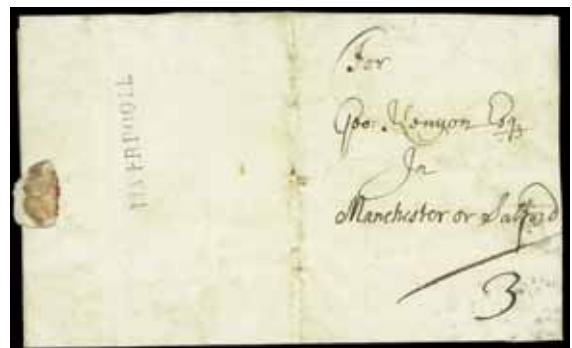 LIVERPOOLE
For
Geo: Kenyon Esqr
In
Manchester or Salford
3